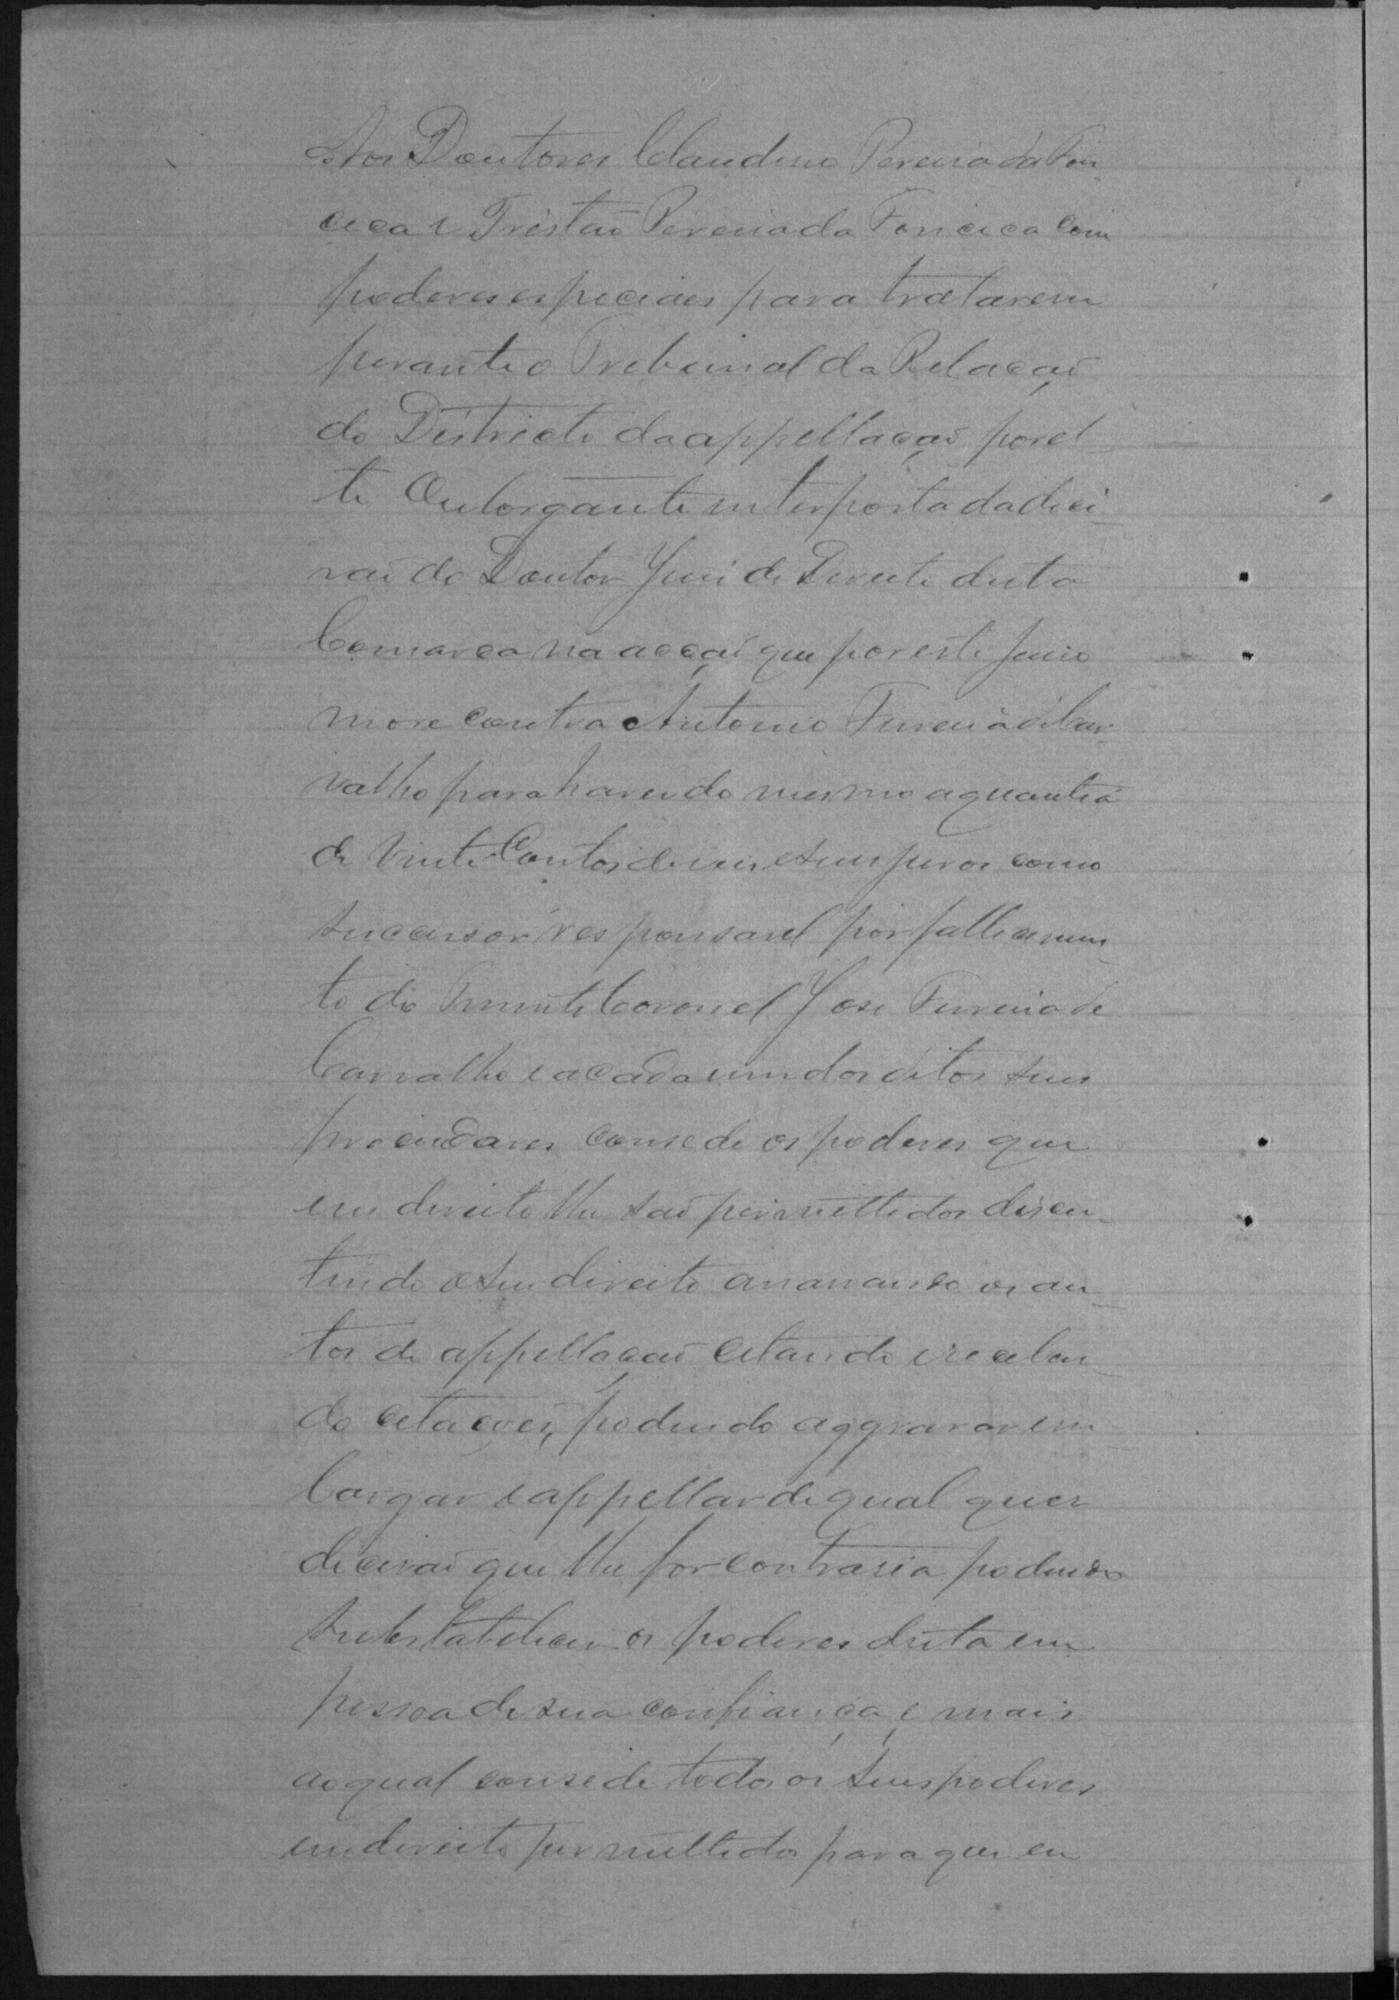 Aos Doutores Claudino Pereira da Fon
ceca e Tristaõ Pereira da Fonceca com
poderes especiaes para tratarem
perante o Trebunal da Relaçaõ
do Districto da appellaçaõ por el
te Outorgante interposta da deci
saõ do Doutor Juiz de Direito desta
Comarca na acçaõ que por este Juizo
move contra Antonio Ferreira de Car
valho para haver do mesmo a quantia
de vinte Contos de reis e seus juros como
sucessor responsavel por fallecimen
to do Tenente Coronel Jose Ferreira de
Carvalho e a cada um dos ditos seus
procuradores consede os poderes que
em direito lhe saõ permettidos discu
tindo o seu direito arrazoando os au
tos de appellaçaõ citando e receben
do citações, podendo aggravar em
bargar e appellar de qual quer
decisaõ que lhe for contraria podendo
substabelecer os poderes desta em
pessoa de sua confiança, e mais
ao qual consede todos os seus poderes
em direito permettidos para que em